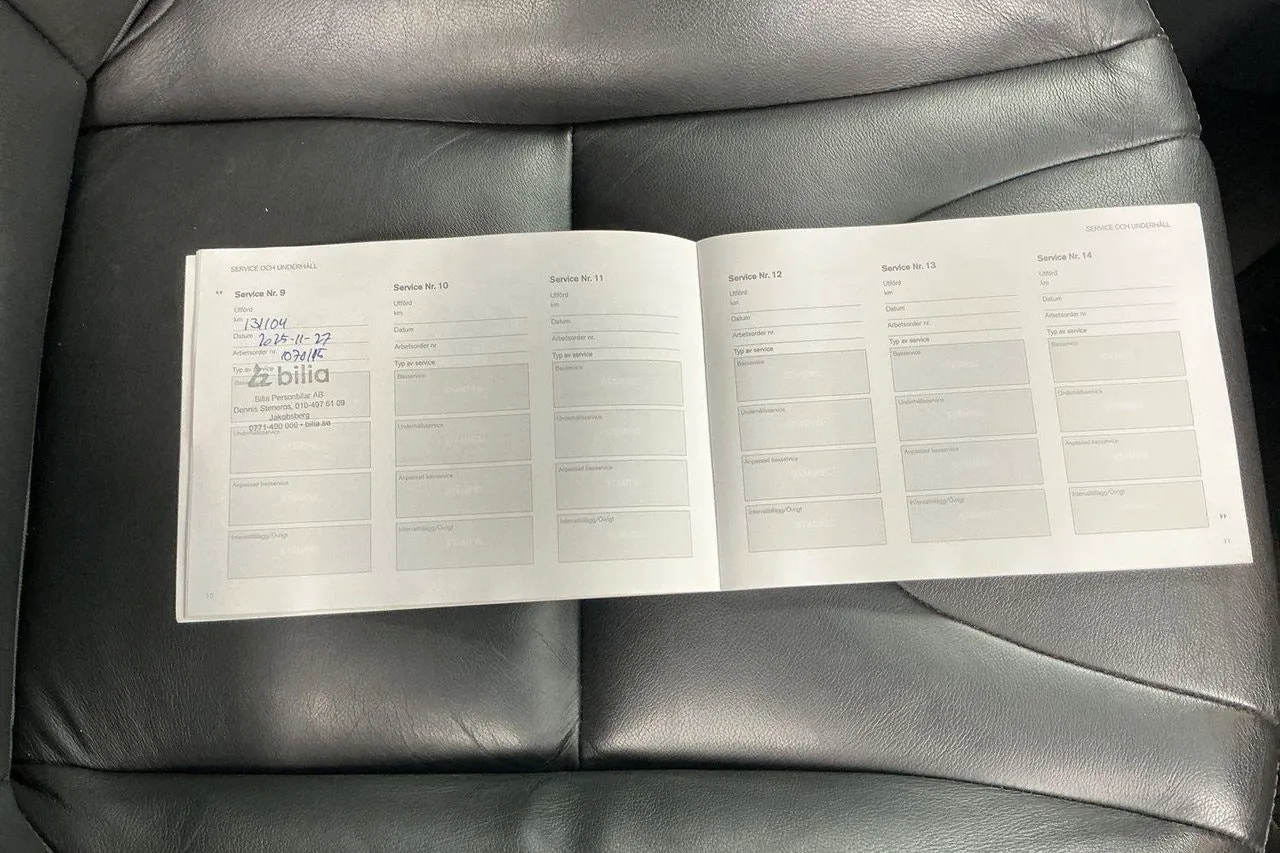 SERVICE OCH UNDERHÅLL
Service Nr. 9
Utförd
km 131104
Datum 2025-11-27
Arbetsorder nr.
Typ av service
bilia
Bilia Personbilar AB
Dennis Steneros, 010-497 61 09
Jakobsberg
0771-400 000 • bilia.se
Underhållsservice
Anpassad basservice
Intervalltillägg/Övrigt
10
Service Nr. 10
Utförd
km
Datum
Arbetsorder nr.
Typ av service
Basservice
Underhållsservice
Anpassad basservice
Intervalltillägg/Övrigt
Service Nr. 11
Utförd
km
Datum
Arbetsorder nr.
Typ av service
Basservice
Underhållsservice
Anpassad basservice
Intervalltillägg/Övrigt
SERVICE OCH UNDERHÅLL
Service Nr. 12
Utförd
km
Datum
Arbetsorder nr.
Typ av service
Basservice
Underhållsservice
Anpassad basservice
Intervalltillägg/Övrigt
Service Nr. 13
Utförd
km
Datum
Arbetsorder nr.
Typ av service
Basservice
Underhållsservice
Anpassad basservice
Intervalltillägg/Övrigt
Service Nr. 14
Utförd
km
Datum
Arbetsorder nr.
Typ av service
Basservice
Underhållsservice
Anpassad basservice
Intervalltillägg/Övrigt
11